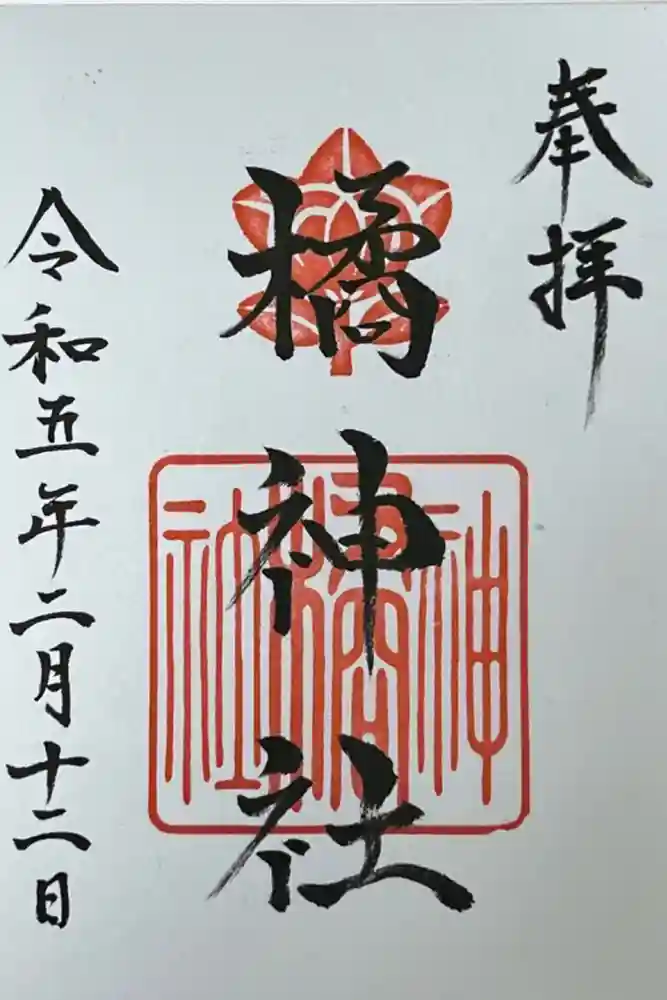 奉拝
橘神社
令和五年二月十二日
橘神社